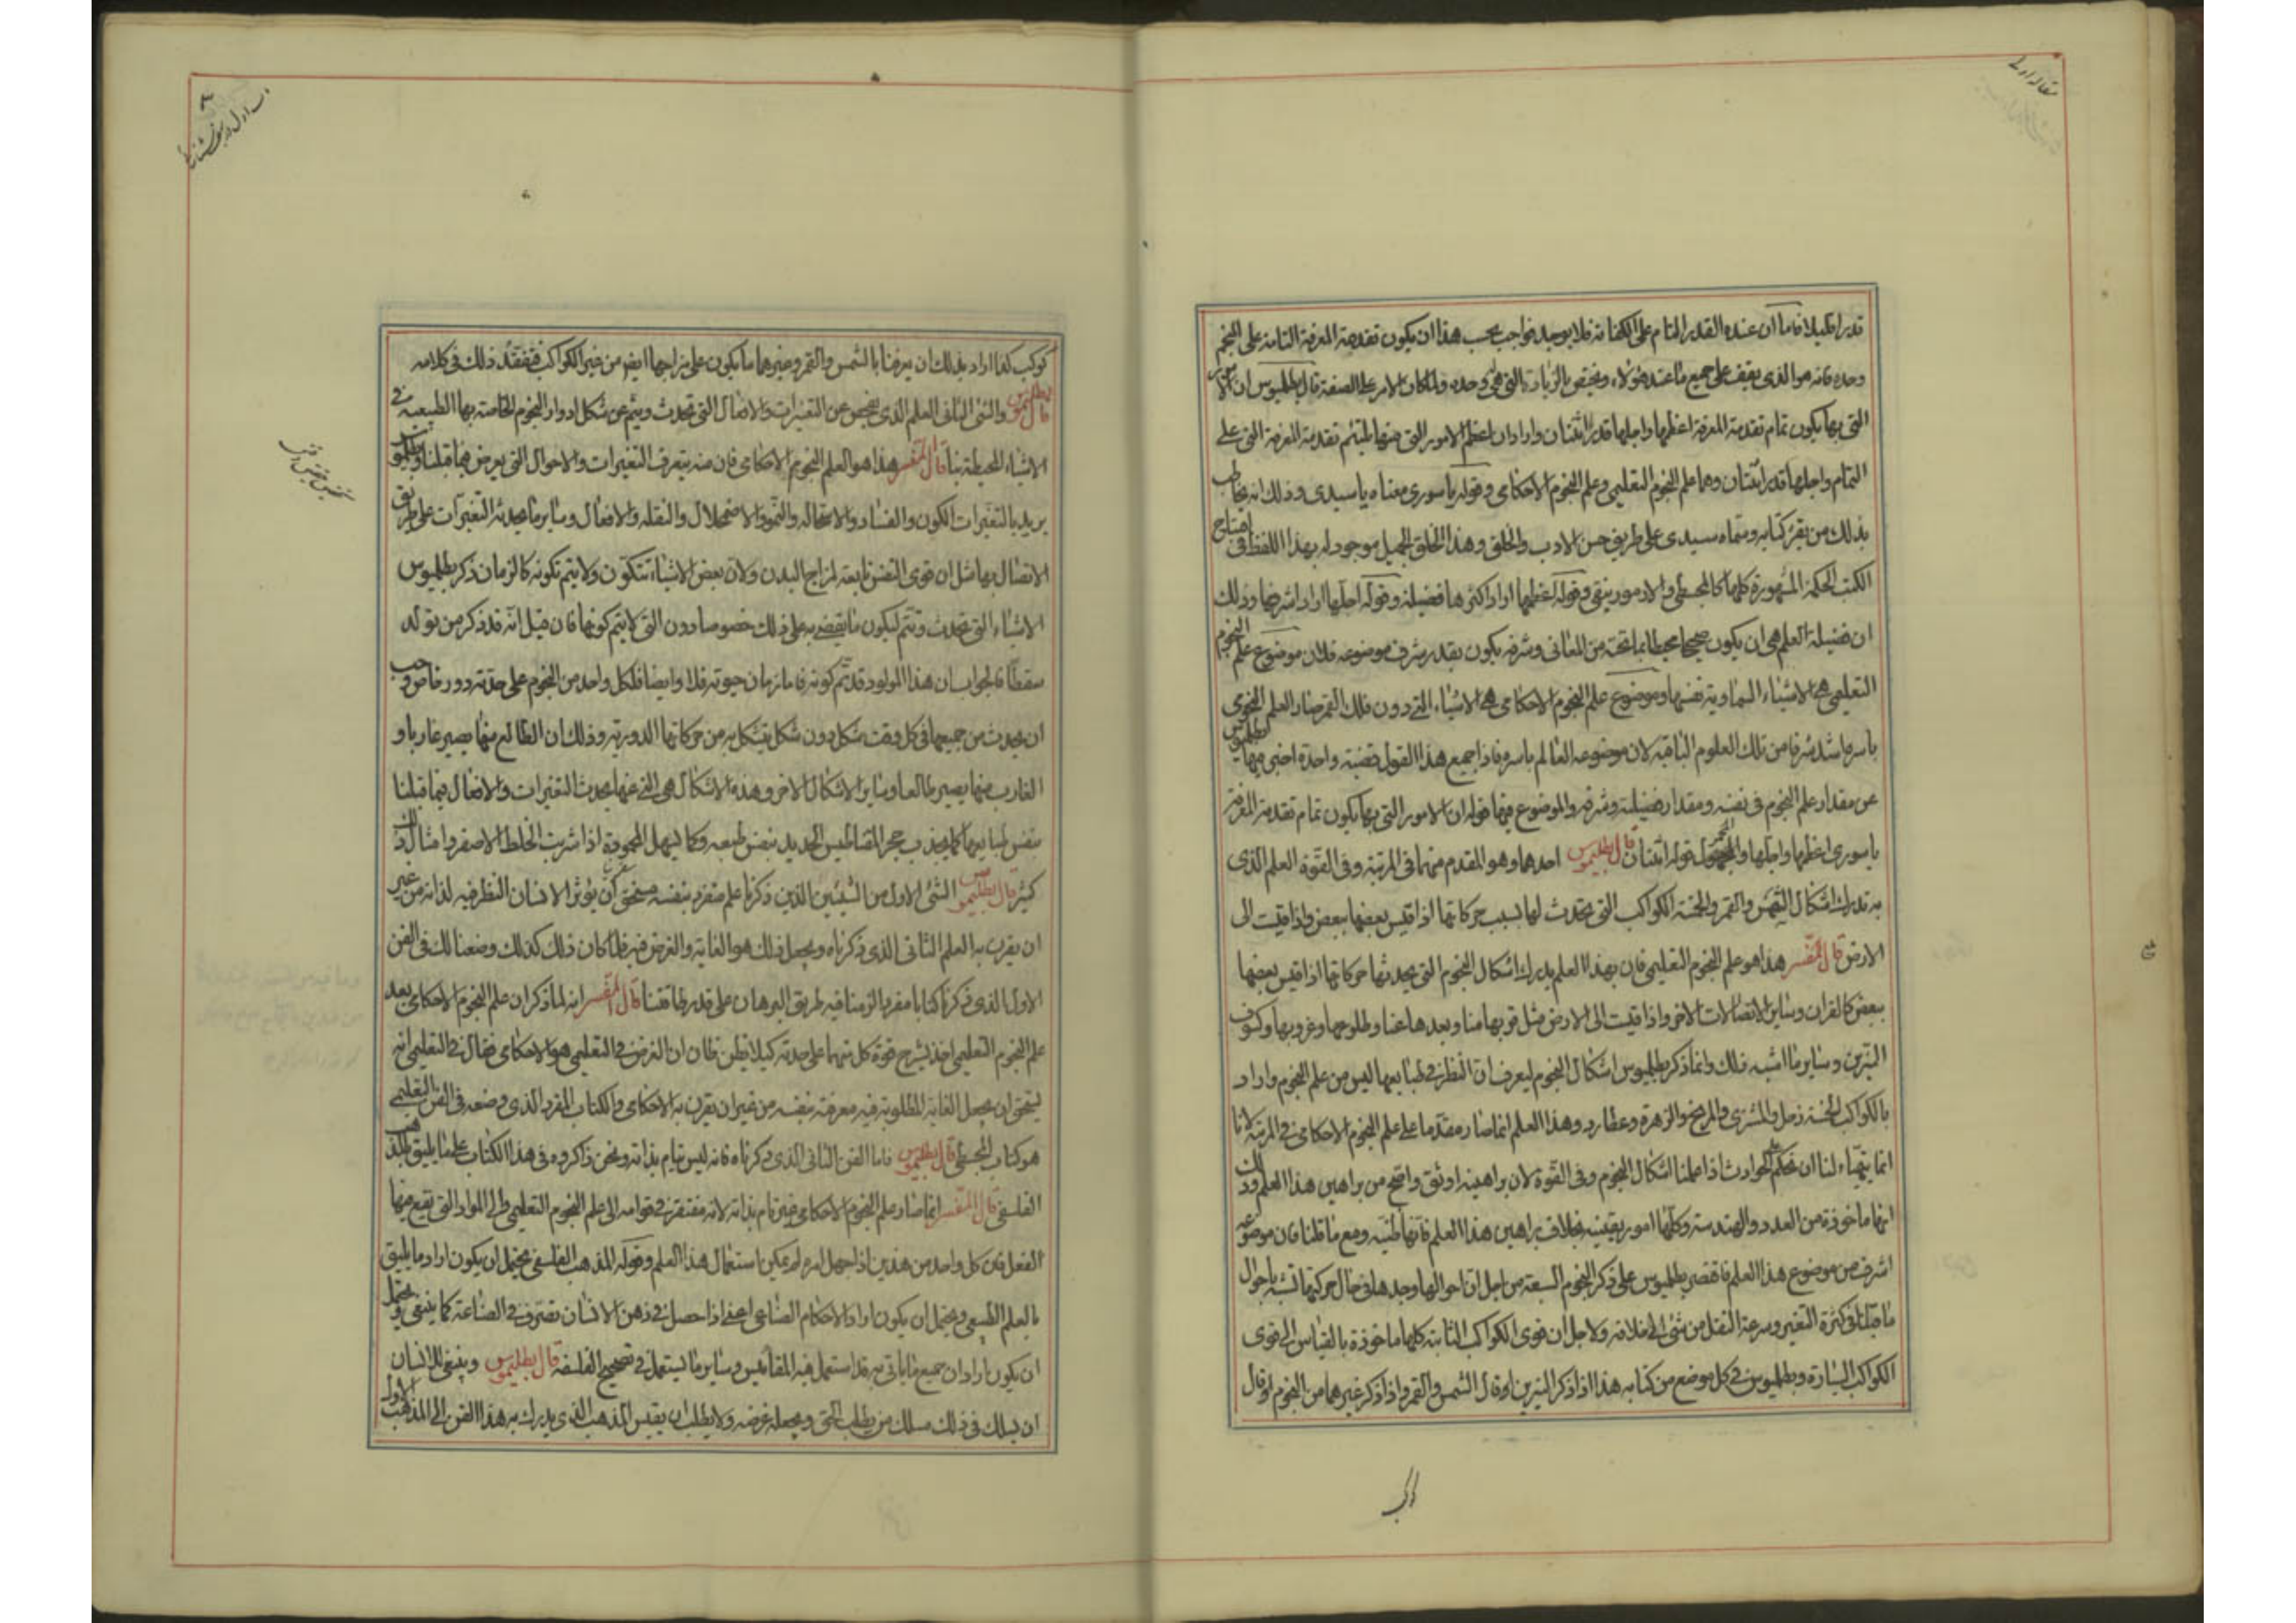 مقاله اولى
قدرا قليلا فاما ان عنده القدر التام على الكفاية فلا يوجد فواجب بحسب هذا ان يكون تقدمة المعرفة التامة على المنجم
وحده فانه هو الذى يقف على جميع ما عند هؤلاء ويختص بالزيادة التى هى وحده ولما كان الامر على الصفة قال بطلميوس ان الامور
التى بها يكون تمام تقدمة المعرفة اعظمها واجلها قدرا اثنتان واراد ان اعظم الامور التى منها يلتئم تقدمة المعرفة التى على
التمام واجلها قدرا اثنتان وهما علم النجوم التعليمى وعلم النجوم الاحكامى وقوله يا سورى معناه يا سيدى وذلك انه يخاطب
بذلك من يقرء كتابه وسماه سيدى على طريق حسن الادب والخلق وهذا الخلق الجميل موجود له بهذا اللفظ فى افتتاح
الكتب الحكمة المشهورة كلها كالمجسطى و وقوله اعظمها اراد اكثرها فضيلة وقوله اجلها اراد اشرفها وذلك
ان فضيلة العلم هى ان يكون صحيحا محيطا بما تحته من المعانى وشرفه يكون بقدر شرف موضوعه فلان موضوع علم النجوم
التعليمى هى الاشياء السماوية نفسها وموضوع علم النجوم الاحكامى هى الاشياء التى دون فلك القمر صار العلم النجومى
باسره اشد شرفا من تلك العلوم الباقية لان موضوعه العالم باسره فاذا جميع هذا القول قضية واحدة اخبر فيها بطلميوس
عن مقدار علم النجوم فى نفسه ومقدار فضيلته وشرفه والموضوع فيها قوله ان الامور التى بها يكون تمام تقدمة المعرفة
يا سورى اعظمها واجلها والمحمول قوله اثنتان قال بطلميوس احدهما وهو المقدم منهما فى المرتبة وفى القوة العلم الذى
به تدرك اشكال الشمس والقمر والخمسة الكواكب التى تحدث لها بسبب حركاتها اذا قيس بعضها ببعض واذا قيست الى
الارض قال المفسر هذا هو علم النجوم التعليمى فان بهذا العلم يدرك اشكال النجوم التى يحدثها حركاتها اذا قيس بعضها
ببعض كالقران وساير الاتصالات الاخر واذا قيست الى الارض مثل قربها منا وبعدها عنا وطلوعها وغروبها وكسوف
النيرين وساير ما اشبه ذلك وانما ذكر بطلميوس اشكال النجوم ليعرف ان النظر فى طبايعها ليس من علم النجوم واراد
بالكواكب الخمسة زحل والمشترى والمريخ والزهرة وعطارد وهذا العلم انما صار مقدما على علم النجوم الاحكامى فى المرتبة لانا
انما يتهياء لنا ان نحكم على الحوادث اذا علمنا اشكال النجوم وفى القوة لان براهينه اوثق واصح من براهين هذا العلم وذلك
انها ماخوذة من العدد والهندسة وكلها امور يقينية بخلاف براهين هذا العلم فانها ظنية ومع ما قلنا فان موضوعه
اشرف من موضوع هذا العلم فاقتصر بطلميوس على ذكر النجوم السبعة من اجل ان احوالها وجدها فى حال حركتها تشبه باحوال
ما قبلنا فى كثرة التغير وسرعة النقل من شئ الى خلافه ولاجل ان قوى الكواكب الثابتة كلها ماخوذة بالقياس الى قوى
الكواكب السيارة وبطلميوس فى كل موضع من كتابه هذا اذا ذكر النيرين او قال الشمس والقمر واذا ذكر غيرهما من النجوم او قال
كوكب
٣
كوكب كذا اراد بذلك ان يعرفنا بالشمس والقمر وغيرهما ما يكون على مزاجها ايضا من غير الكواكب فتفقد ذلك فى كلامه
قال بطلميوس والشئ الثانى العلم الذى يفحص عن التغيرات والافعال التى تحدث ويتم عن شكل ادوار النجوم الخاصة بها الطبيعية فى
الاشياء المحيطة بنا قال المفسر هذا هو العلم النجوم الاحكامى فان منه يتعرف التغيرات والاحوال التى يعرض فيما قبلنا وبطلميوس
يريد بالتغيرات الكون والفساد والاستحالة والنمو والاضمحلال والنقلة والافعال وساير ما يحدثه التغيرات على طريق
الاتصال بها مثل ان قوى النفس تابعة لمزاج البدن ولان بعض الاشياء تتكون ولا يتم تكونه كالزمان ذكر بطلميوس
الاشياء التى تحدث وتتم ليكون ما يقضى به على ذلك خصوصا دون التى لا يتم كونها فان قيل انه قد ذكر من تولد
سقطا فالجواب ان هذا المولود قد تم كونه فاما زمان حيوته فلا وايضا فلكل واحد من النجوم على حدته دور خاص وجب
ان يحدث من جميعها فى كل وقت شكل دون شكل بتشكل به من حركاتها الدورية وذلك ان الطالع منها يصير غاربا و
الغارب منها يصير طالعا وساير الاشكال الاخر وهذه الاشكال هى التى عنها يحدث التغيرات والافعال فيما قبلنا
بنفس طبايعها كما يجذب حجر المغناطيس الحديد بنفس طبعه وكما يسهل المحمودة اذا شربت الخلط الاصفر وامثال ذلك
كثير قال بطلميوس الشئ الاول من الشيئين الذين ذكرنا علم متفرد بنفسه مستحق لان يؤثر الانسان النظر فيه لذاته من غير
ان يقرن به العلم الثانى الذى ذكرناه ويجعل ذلك هو الغاية والغرض فيه فلما كان ذلك كذلك وضعنا لك فى الفن
الاول الذى ذكرنا كتابا مفردا لزمنا فيه طريق البرهان على قدر طاقتنا قال المفسر انه لما ذكر ان علم النجوم الاحكامى بعد
علم النجوم التعليمى اخذ يشرح قوة كل منهما على حدته كيلا يظن ظان ان الغرض فى التعليمى هو الاحكامى فقال فى التعليمى انه
يستحق ان يجعل الغاية المطلوبة فيه معرفته بنفسه من غير ان يقرن به الاحكامى والكتاب المفرد الذى وضعه فى الفن التعليمى
هو كتاب المجسطى قال بطلميوس فاما الفن الثانى الذى ذكرناه فانه ليس تيام بذاته ونحن ذاكروه فى هذا الكتاب على ما يليق بالمذهب
الفلسفى قال المفسر انما صار علم النجوم الاحكامى غير تام بذاته لانه مفتقر فى قوامه الى علم النجوم التعليمى والى المواد التى يقع فيها
الفعل فان كل واحد من هذين اذا جهل امره لم يمكن استعمال هذا العلم وقوله المذهب الفلسفى يحتمل ان يكون اراد ما يليق
بالعلم الطبيعى ويحتمل ان يكون اراد الاحكام الصناعى اعنى اذا حصل فى ذهن الانسان تصرف فى الصناعة كما ينبغى ويحتمل
ان يكون اراد ان جميع ما ياتى به قد استعمل فيه المقاييس وساير ما يستعمل فى تصحيح الفلسفه قال بطلميوس وينبغى للانسان
ان يسلك فى ذلك مسلك من يطلب الحق ويجعله غرضه ولا يطلب ان يقيس المذهب الذى يدرك به هذا الفن الى المذهب الاول